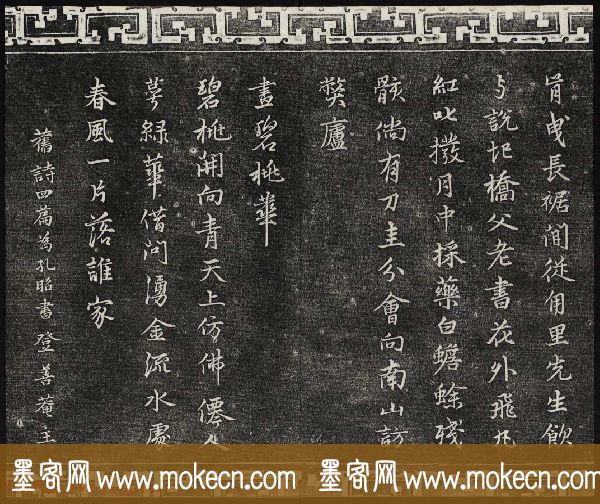 肯曳長裾閒從甪里先生飲
與說圯橋父老書花外飛丸
紅叱撥月中採藥白蟾蜍殘
骸倘有刀圭分會向南山訪
獘廬
畫碧桃華
碧桃開向青天上仿佛僊人
萼綠華借問湧金流水處
春風一片落誰家
舊詩四篇為孔昭書登善菴主
墨客网 www.mokecn.com 墨客网 www.mokecn.com